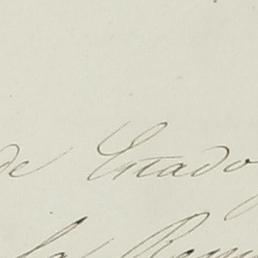 de Estado
la